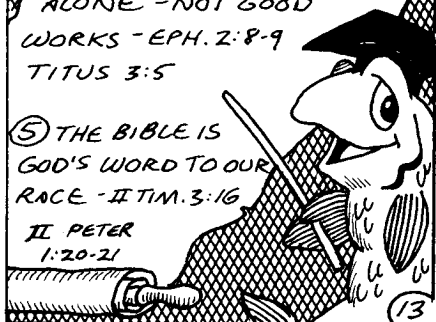 ALONE - NOT GOOD
WORKS - EPH. 2:8-9
TITUS 3:5
⑤ THE BIBLE IS
GOD'S WORD TO OUR
RACE - II TIM. 3:16
II PETER
1:20-21
13